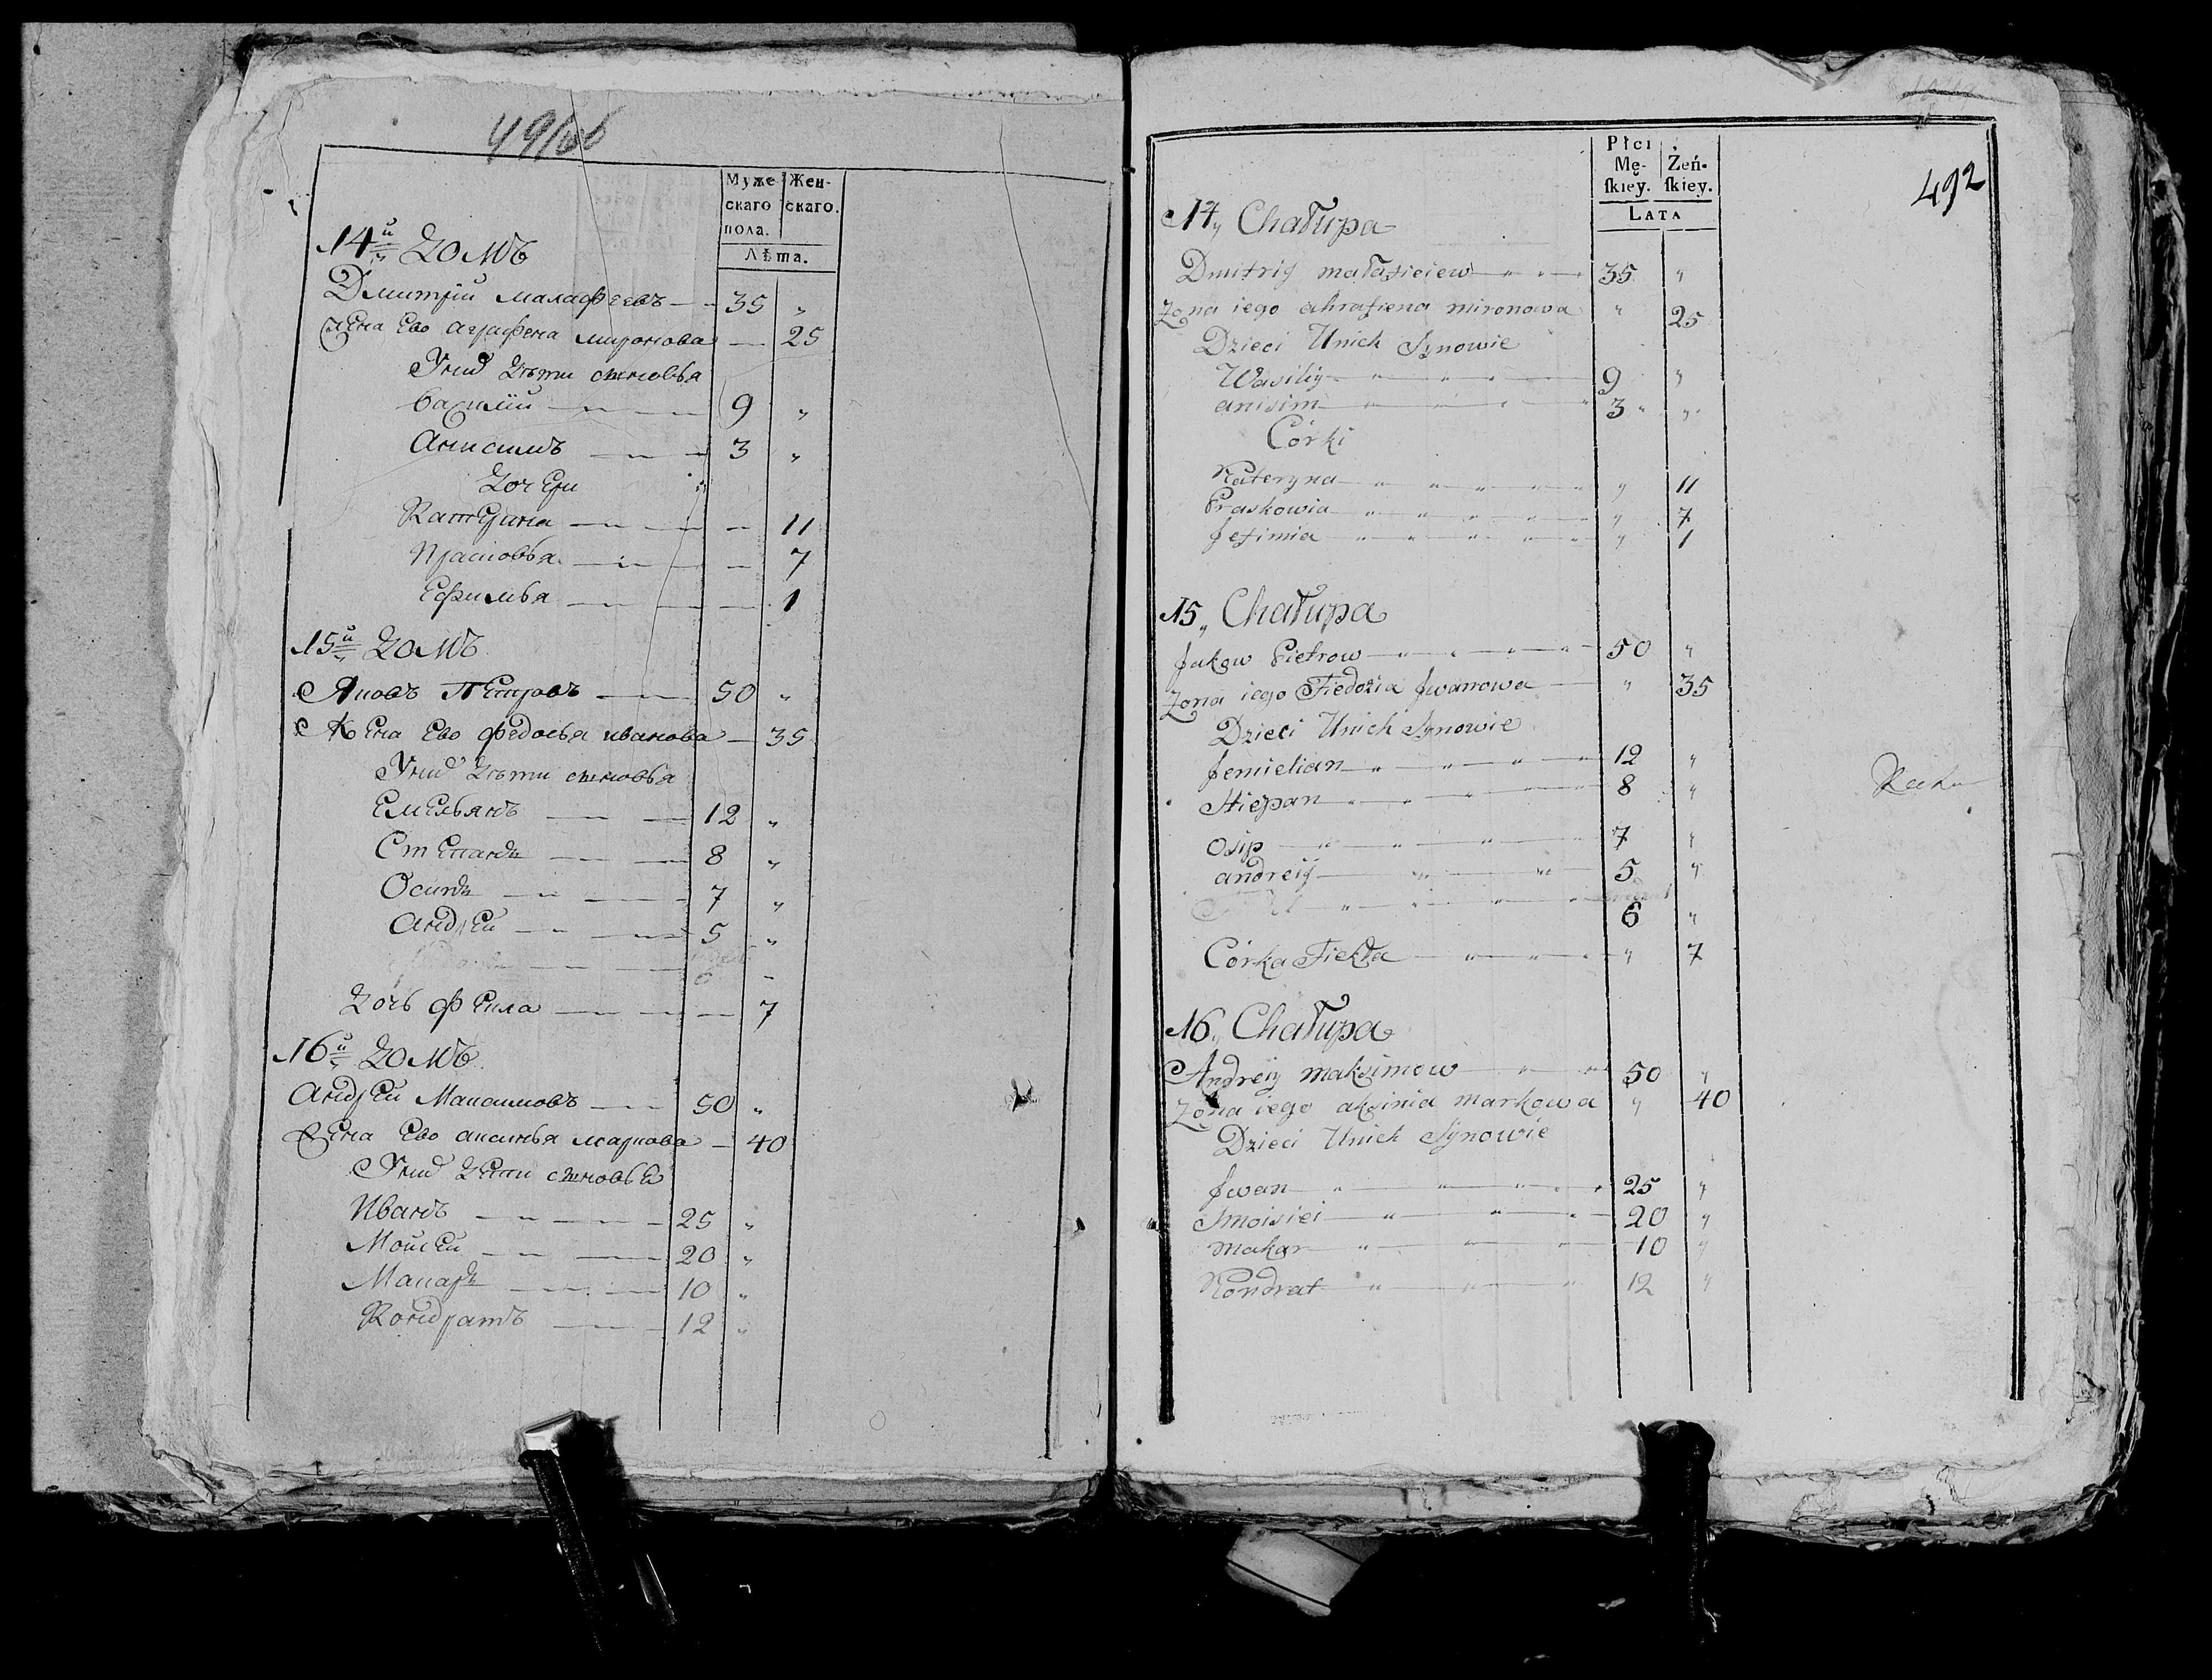 491об
Муже- Жен-
скаго скаго.
пола.
Лѣта.
14й домъ
Дмитрій Малафеевъ 35 "
Жена Ево аграфена миронова 25
Унихъ дѣти сыновья
Василій 9 "
Анисимъ 3 "
Дочери
Катерина 11
Прасковья 7
Ефимья 1
15й домъ
Яковъ Петровъ 50 "
Жена Ево Федосья иванова 35
Унихъ дѣти сыновья
Емельянъ 12 "
Степанъ 8 "
Осипъ 7 "
Андрей 5 "
6 "
Дочь Фекла 7
16й домъ
Андрей Максимовъ 50 "
Жена Ево аксинья маркова 40
Унихъ дети сыновья
Иванъ 25 "
Мойсей 20 "
Макаръ 10 "
Кондратъ 12 "
492
Płci
Mę- Żeń-
ſkiey. ſkiey.
Lata
14 Chałupa
Dmitriy małafieiew 35 "
Zona iego ahrafiena mironowa " 25
Dzieci Unich Synowie
Wasiliy 9 "
anisim 3 "
Córki
Kateryna " 11
Praskowia " 7
Jefimia " 1
15 Chałupa
Jakow Pietrow 50 "
Zona iego Fiedozia Jwanowa " 35
Dzieci Unich Synowie
Jemielian 12 "
Stiepan 8 "
Osip 7 "
andreiy 5 "
6 "
Córka Fiekła " 7
16 Chałupa
Andreiy maksimow 50 "
Zona iego aksinia markowa " 40
Dzieci Unich Synowie
Jwan 25 "
Moisiei 20 "
Makar 10 "
Kondrat 12 "